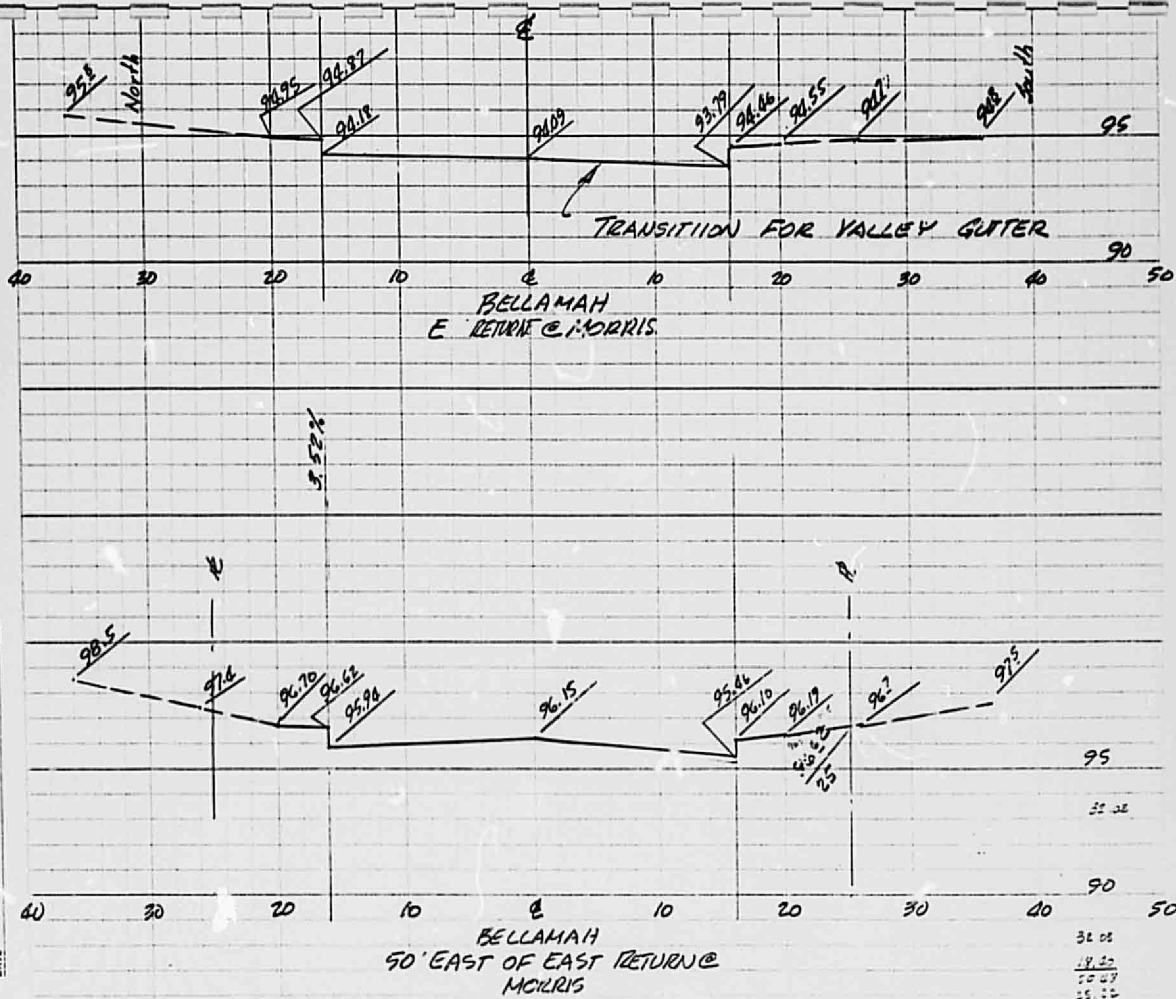 ℄
95⁸
North
94.95
94.87
94.18
94.09
93.79
94.46
94.55
94⁸
South
95
TRANSITIION FOR VALLEY GUTTER
90
40 30 20 10 ℄ 10 20 30 40 50
BELLAMAH
E RETURN @ MORRIS
3.52%
98.5
97.4
96.70
96.62
95.94
96.15
95.46
96.10
96.19
96.?
97⁵
25
95
90
40 30 20 10 ℄ 10 20 30 40 50
BELLAMAH
50' EAST OF EAST RETURN @
MORRIS